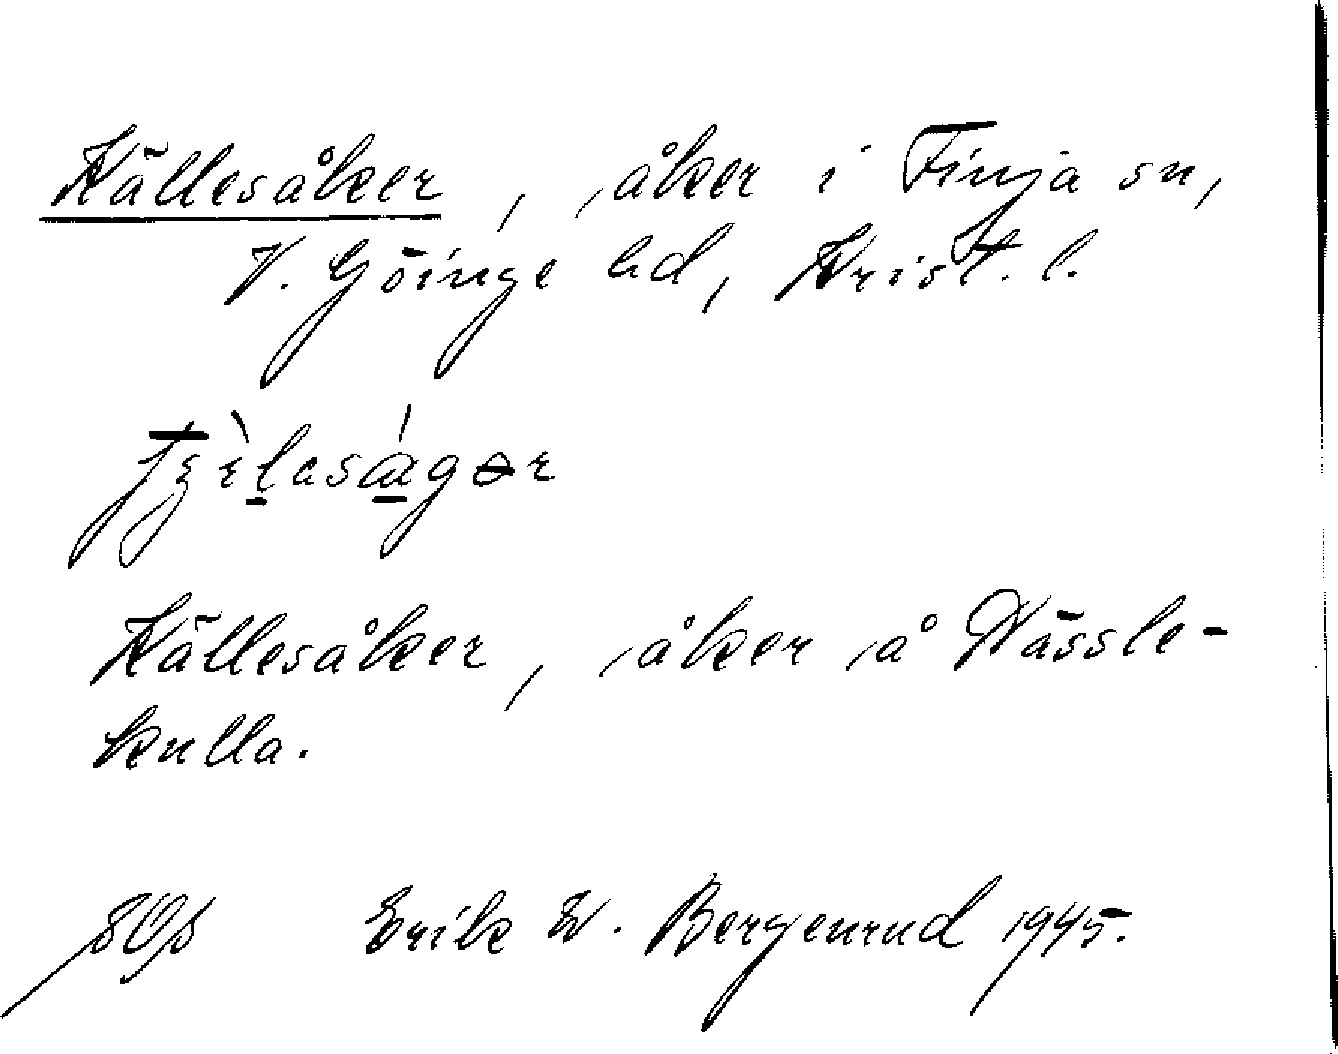 Källesåker, åker i Finja sn,
V. Göinge hd, Krist. l.
Källesåker, åker å Nässle-
kulla.
Erik W. Bergenrud 1945.